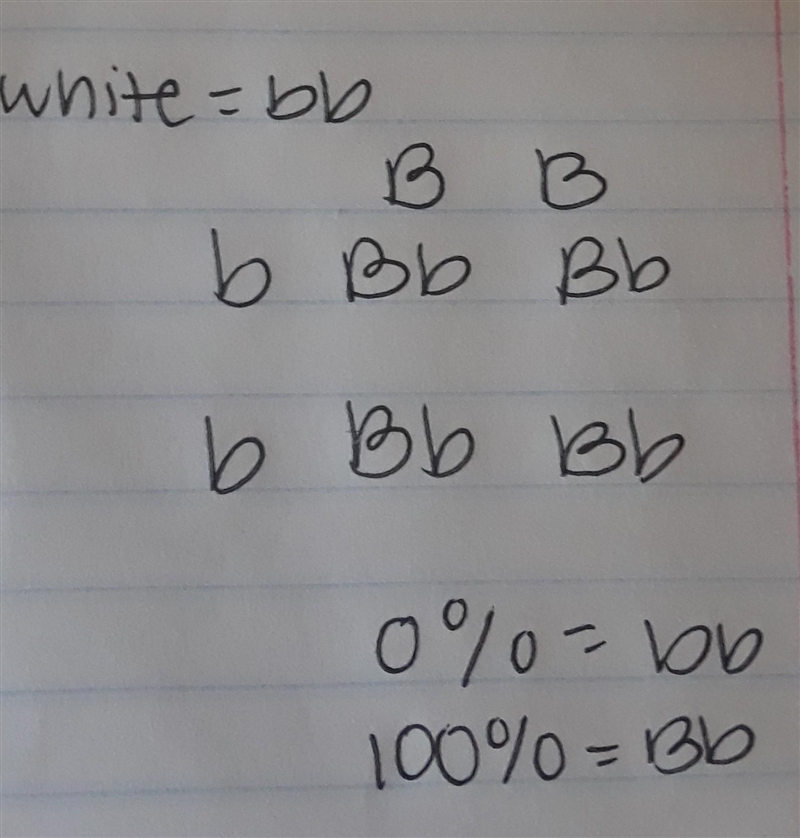 white = bb
B B
b Bb Bb
b Bb Bb
0% = bb
100% = Bb